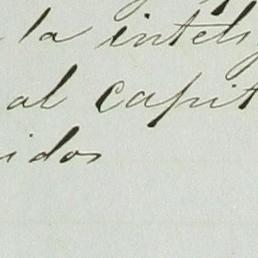 la intel
al capit
idos